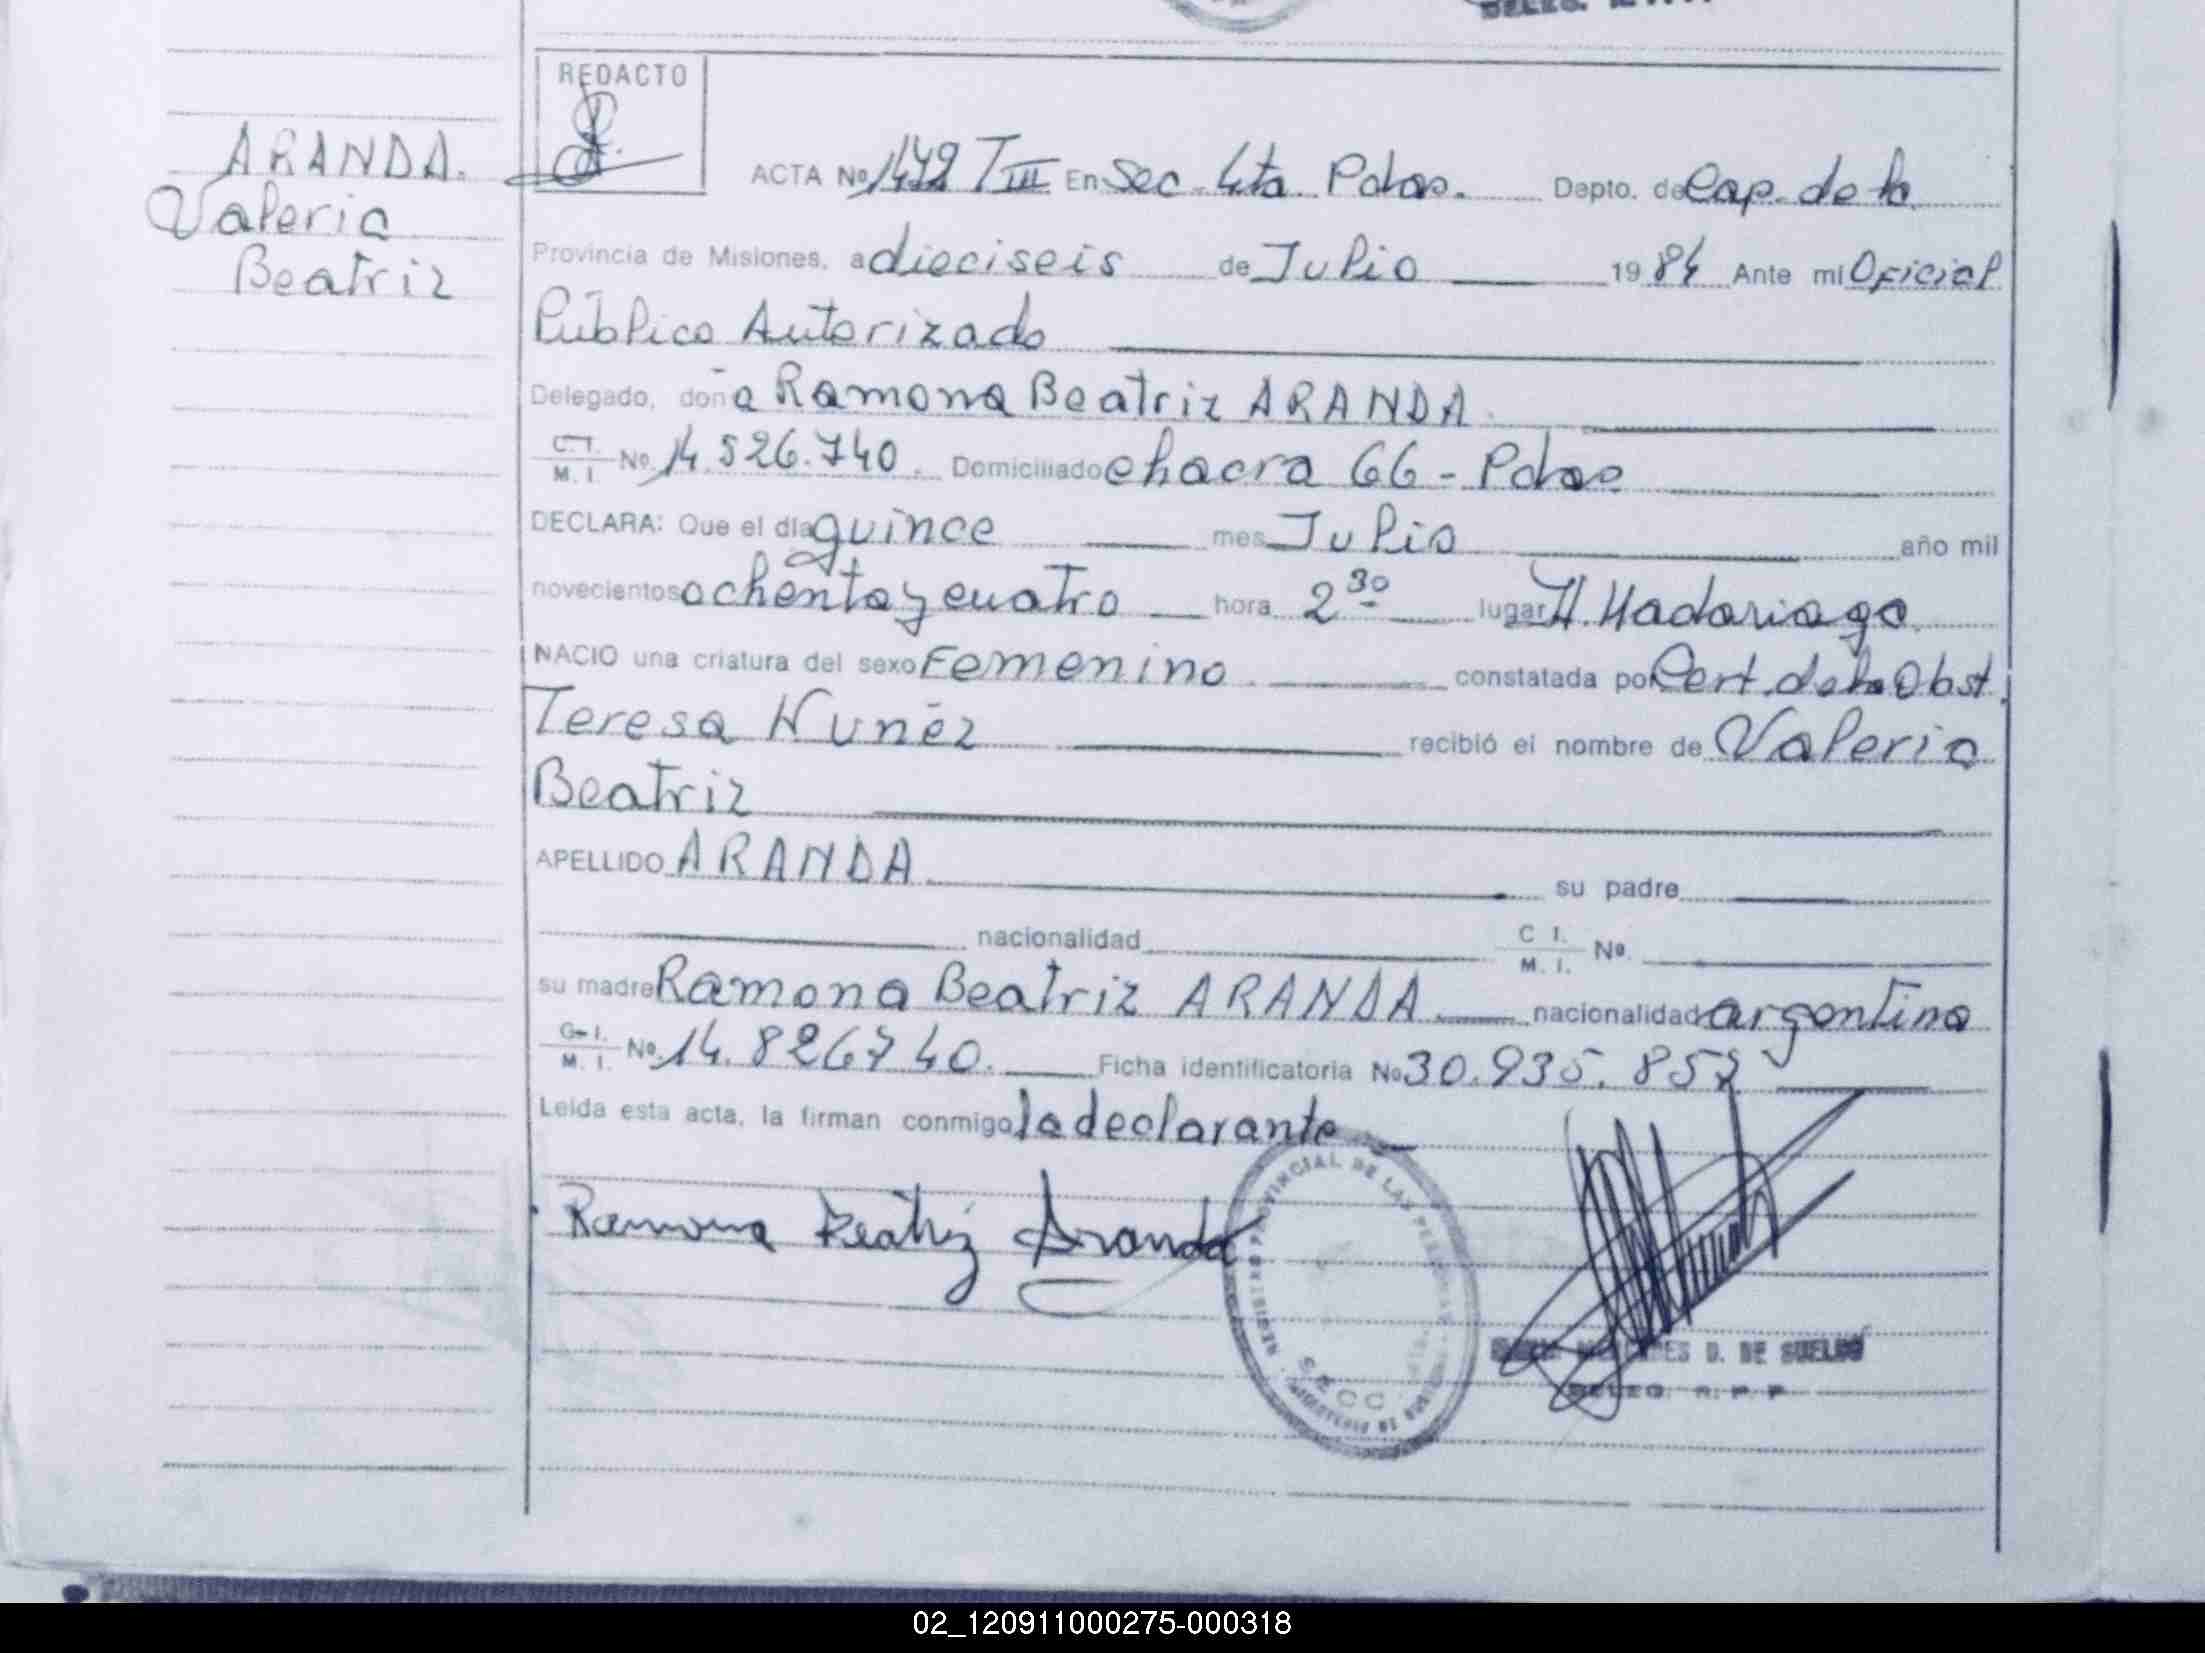 DELEG.
REDACTO
ARANDA.
Valeria
Beatriz
ACTA No 1492 T III En Sec. 4ta. Pdas. Depto. de Cap. de la
Provincia de Misiones, a dieciseis de Julio 1984 Ante mi Oficial
Público Autorizado
Delegado, doña Ramona Beatriz ARANDA.
C.I. M.I. No. 14.526.740. Domiciliado chacra 66 - Pdas
DECLARA: Que el día quince mes Julio año mil
novecientos ochenta y cuatro hora 2 30 lugar H. Madariaga.
NACIO una criatura del sexo Femenino. constatada por Cert. de la Obst.
Teresa Nuñez recibió el nombre de Valeria
Beatriz
APELLIDO ARANDA su padre
nacionalidad C I. M. I. No.
su madre Ramona Beatriz ARANDA nacionalidad argentina
C.I. M. I. No. 14.826740. Ficha identificatoria No 30.935.857
Leída esta acta, la firman conmigo la declarante
Ramona Beatriz Aranda
REGISTRO PROVINCIAL DE LAS PERSONAS
SECC.
D. DE SUELDO
DELEG. R. P. P
02_120911000275-000318